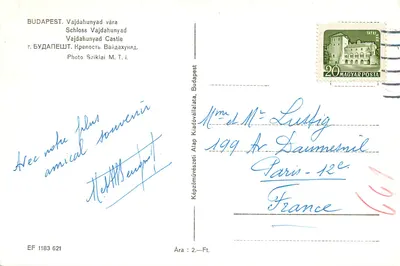 BUDAPEST. Vajdahunyad vára
Schloss Vajdahunyad
Vajdahunyad Castle
г. БУДАПЕШТ. Крепость Вайдахуняд
Photo Sziklai M. T. i.
Avec notre plus
amical souvenir
EF 1183 621
Ára : 2.-Ft.
Képzőművészeti Alap Kiadóvállalata, Budapest
20 MAGYAR POSTA
Mme et Mr Lustig
199 Av. Daumesnil
Paris - 12e
France